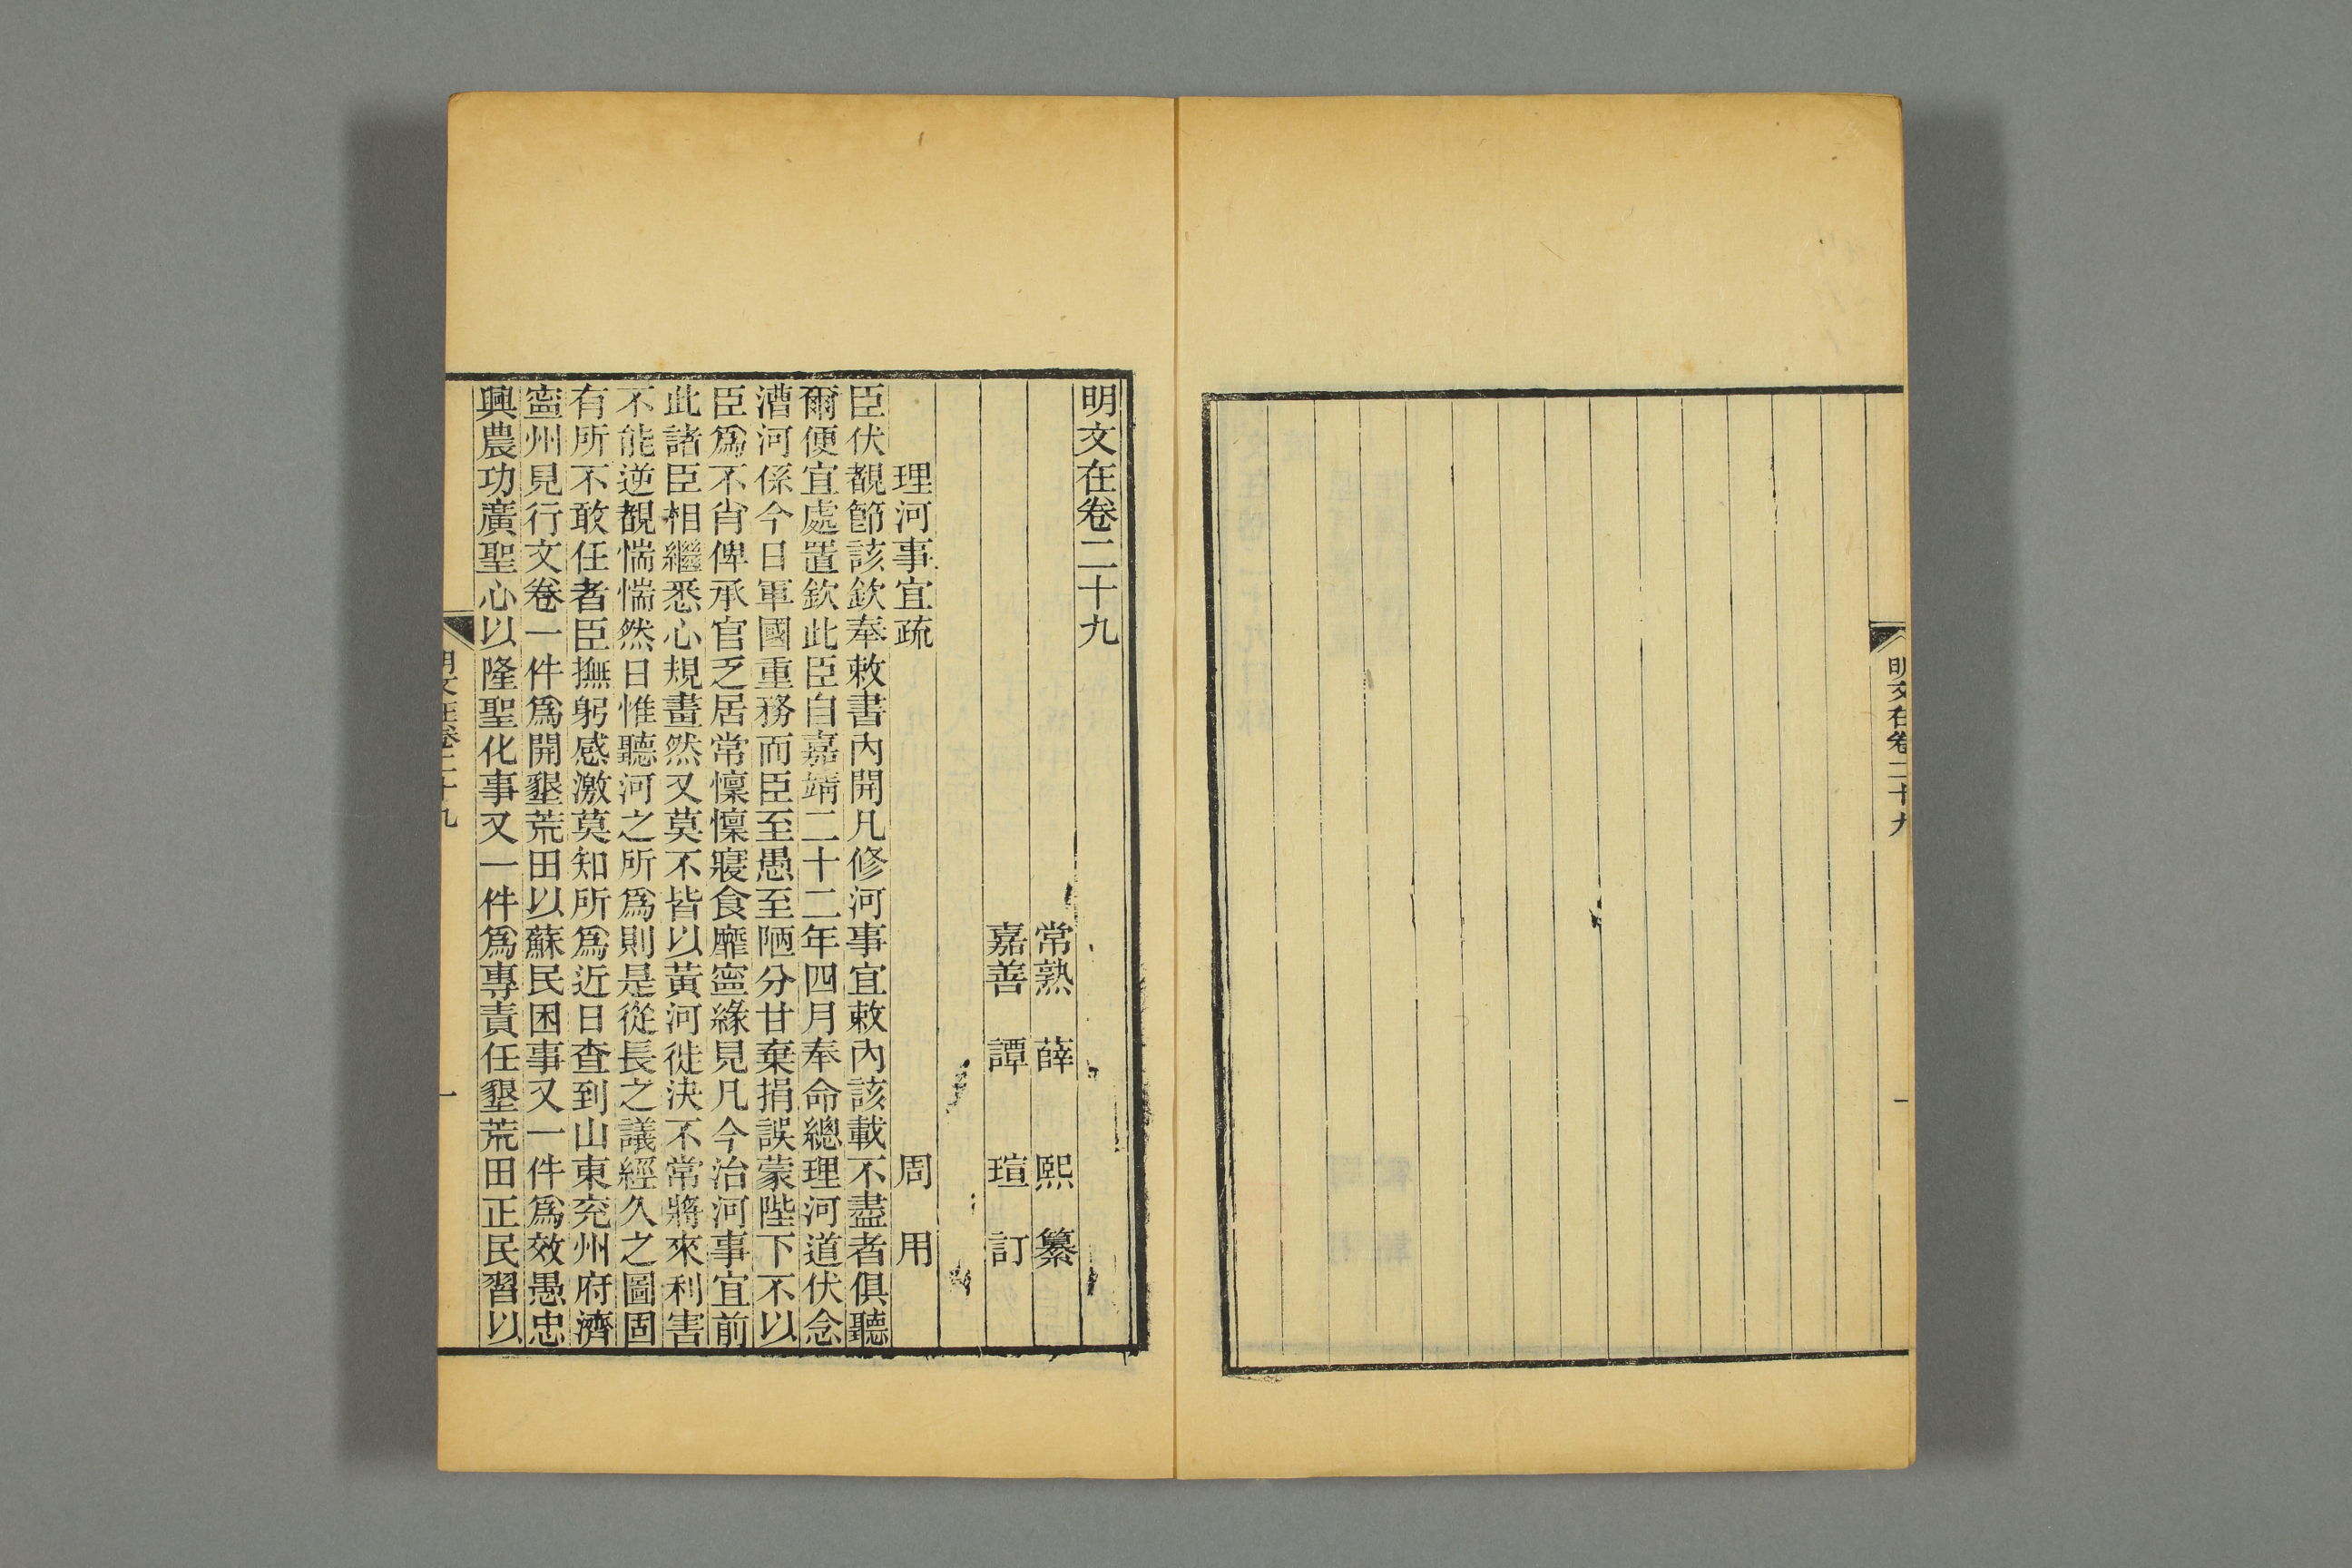 明文在卷二十九
一
明文在卷二十九
常熟 薛 熙 纂
嘉善 譚 瑄 訂
理河事宜疏 周 用
臣伏覩節該欽奉敕書內開凡修河事宜敕內該載不盡者俱聽
爾便宜處置欽此臣自嘉靖二十二年四月奉命總理河道伏念
漕河係今日軍國重務而臣至愚至陋分甘棄捐誤蒙陛下不以
臣爲不肖俾承官乏居常懍懍寢食靡寧緣見凡今治河事宜前
此諸臣相繼悉心規畫然又莫不皆以黃河徙決不常將來利害
不能逆覩惴惴然日惟聽河之所爲則是從長之議經久之圖固
有所不敢任者臣撫躬感激莫知所爲近日查到山東兖州府濟
寧州見行文卷一件爲開墾荒田以蘇民困事又一件爲效愚忠
興農功廣聖心以隆聖化事又一件爲專責任墾荒田正民習以
明文在卷二十九
一